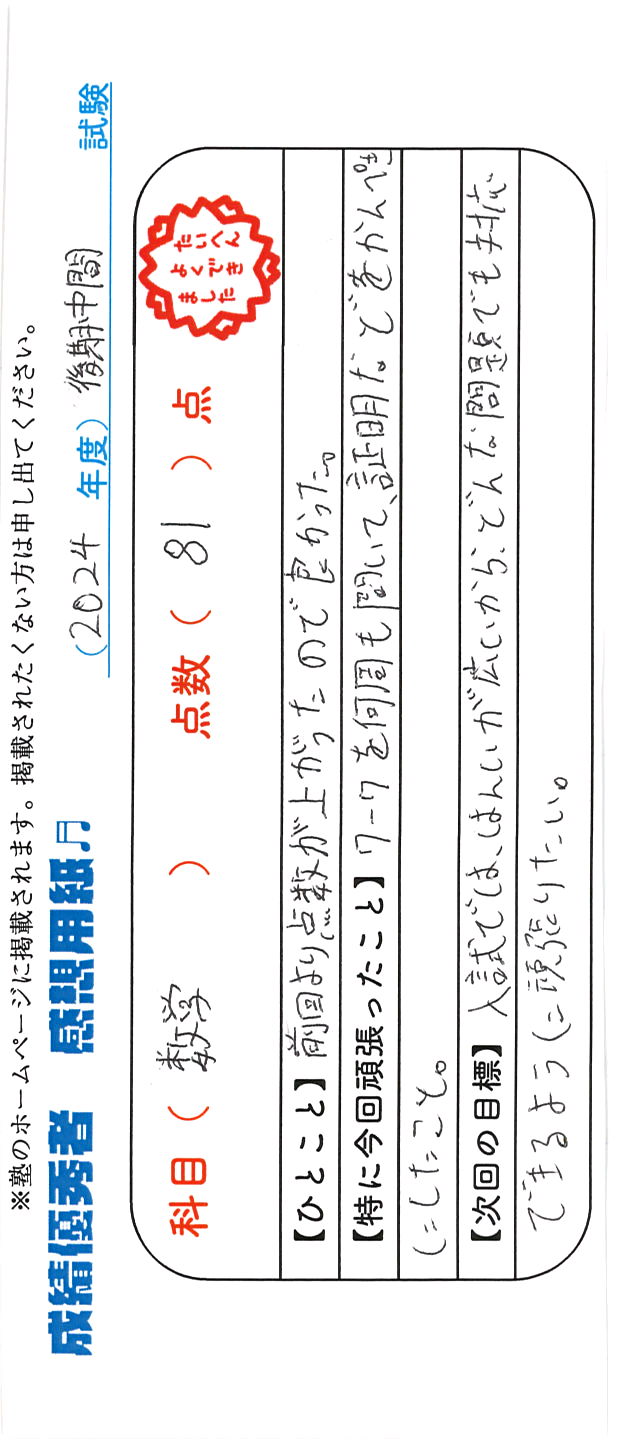 ※塾のホームページに掲載されます。掲載されたくない方は申し出てください。
成績優秀者 感想用紙♬ (2024 年度) 後期中間 試験
科目 ( 数学 ) 点数 ( 81 ) 点
たいへん
よくでき
ました
【ひとこと】前回より点数が上がったので良かった。
【特に今回頑張ったこと】ワークを何周も開いて、証明などをかんぺき
にしたこと。
【次回の目標】入試では、はんいが広いから、どんな問題でも対応
できるように頑張りたい。